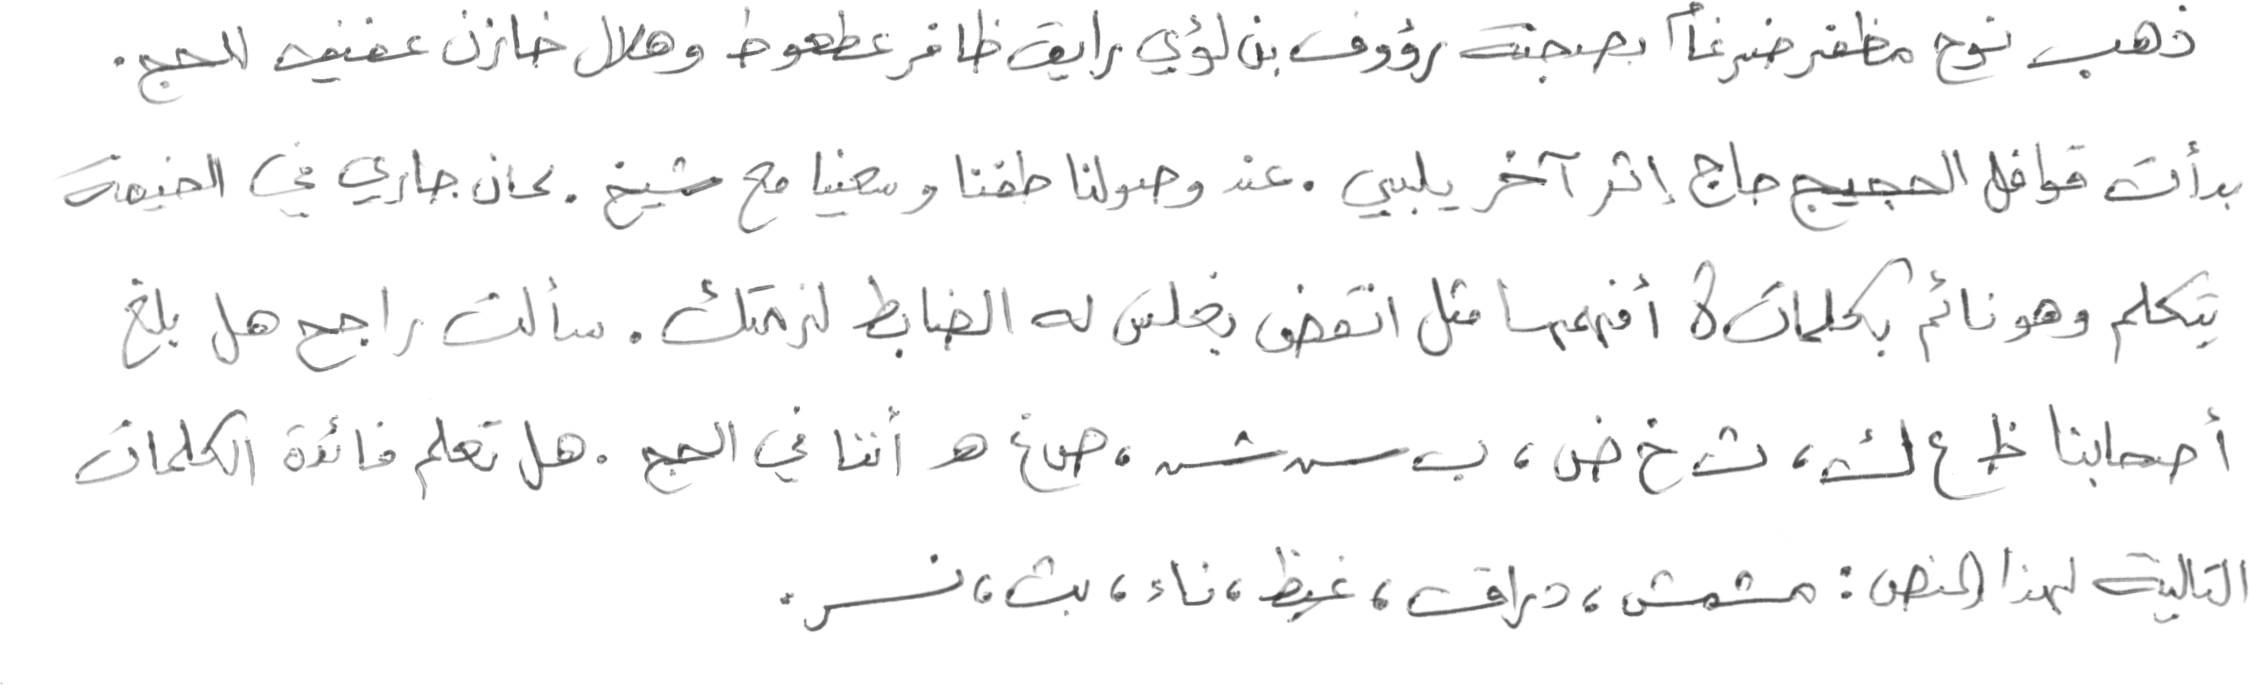 ذهب نوح مظفر ضرغاماً بصحبة رؤوف بن لؤي رايق ظافر عطعوط وهلال خازن عفيف للحج.
بدأت قوافل الحجيج حاج إثر آخر يلبي. عند وصولنا طفنا وسعينا مع شيخ. كان جاري في الخيمة
يتكلم وهو نائم بكلمات لا أفهمها مثل انقض يغلس له الضابط لزمتك. سألت راجح هل بلغ
أصحابنا ظ ع ك، ث خ ض، ب س ش، ص غ هـ أننا في الحج. هل تعلم فائدة الكلمات
التالية لهذا النص: مشمش، دراق، غيظ، ناء، بث، نسر.